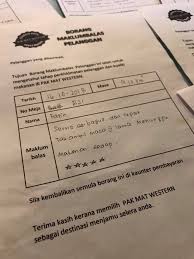 BORANG
MAKLUMBALAS
PELANGGAN
Pelanggan yang dihormati,
Tujuan Borang Maklumbalas Pelanggan ini ialah untuk
mengetahui tahap perkhidmatan pelanggan dan kualiti
makanan di PAK MAT WESTERN.
Tarikh
Masa
No Meja
Nama
Maklum
balas
Semua ok bagus dan cepat
makanan sedap
★★★★★
Sila kembalikan semula borang ini di kaunter pembayaran
Terima kasih kerana memilih PAK MAT WESTERN
sebagai destinasi menjamu selera anda.